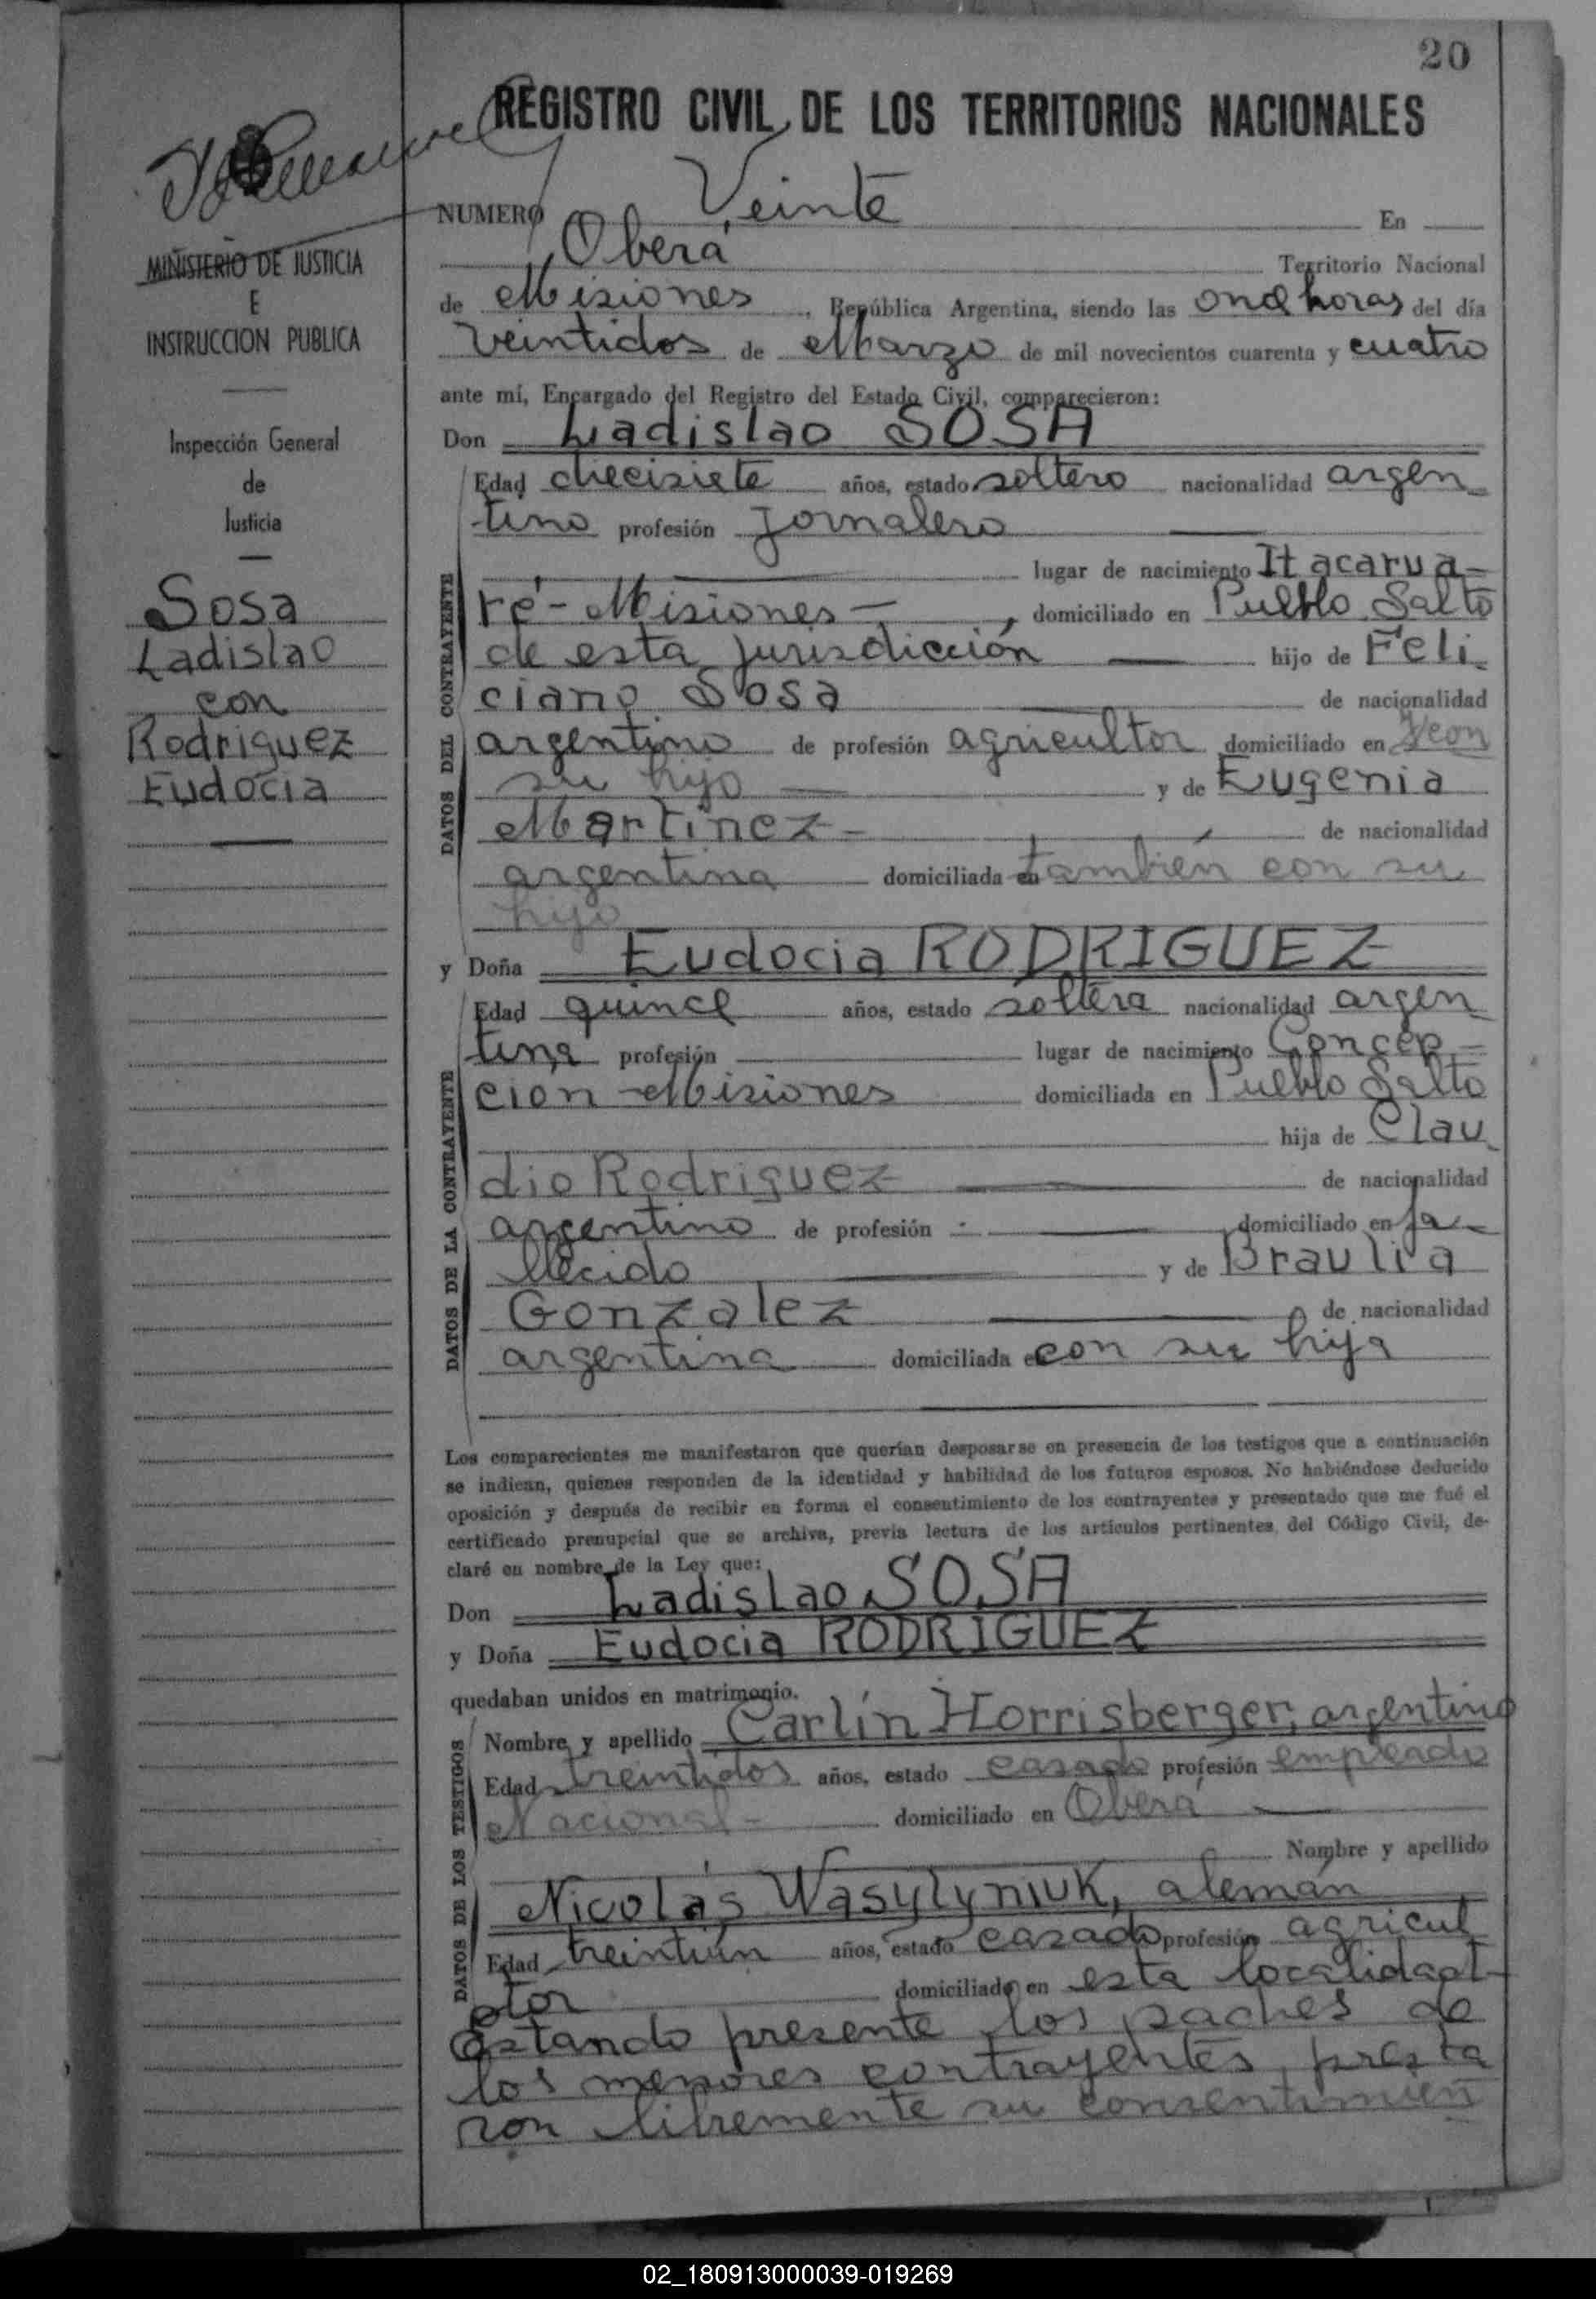 20
REGISTRO CIVIL DE LOS TERRITORIOS NACIONALES
NUMERO Veinte En
Oberá Territorio Nacional
de Misiones, República Argentina, siendo las once horas del día
veintidos de Marzo de mil novecientos cuarenta y cuatro
ante mí, Encargado del Registro del Estado Civil, comparecieron:
Don Ladislao SOSA
Edad diecisiete años, estado soltero nacionalidad argen
tino profesión Jornalero
lugar de nacimiento Itacarua-
ré - Misiones - , domiciliado en Pueblo Salto
de esta jurisdicción hijo de Feli
ciano Sosa de nacionalidad
argentino de profesión agricultor domiciliado en con
su hijo y de Eugenia
Martinez - de nacionalidad
argentina domiciliada en también con su
hijo
y Doña Eudocia RODRIGUEZ
Edad quince años, estado soltera nacionalidad argen
tina profesión lugar de nacimiento Concep-
cion - Misiones domiciliada en Pueblo Salto
hija de Clau
dio Rodriguez de nacionalidad
argentino de profesión domiciliado en fa-
llecido y de Braulia
Gonzalez de nacionalidad
argentina domiciliada en con su hija
Los comparecientes me manifestaron que querían desposarse en presencia de los testigos que a continuación
se indican, quienes responden de la identidad y habilidad de los futuros esposos. No habiéndose deducido
oposición y después de recibir en forma el consentimiento de los contrayentes y presentado que me fué el
certificado prenupcial que se archiva, previa lectura de los artículos pertinentes del Código Civil, de-
claré en nombre de la Ley que:
Don Ladislao SOSA
y Doña Eudocia RODRIGUEZ
quedaban unidos en matrimonio.
Nombre y apellido Carlín Horrisberger, argentino
Edad treintidos años, estado casado profesión empleado
Nacional - domiciliado en Oberá
Nombre y apellido
Nicolás Wasylyniuk, alemán
Edad treintiún años, estado casado profesión agricul
tor domiciliado en esta localidad -
Estando presente los padres de
los menores contrayentes, presta
ron libremente su consentimien
MINISTERIO DE JUSTICIA
E
INSTRUCCION PUBLICA
Inspección General
de
Justicia
Sosa
Ladislao
con
Rodriguez
Eudocia
DATOS DEL CONTRAYENTE
DATOS DE LA CONTRAYENTE
DATOS DE LOS TESTIGOS
02_180913000039-019269